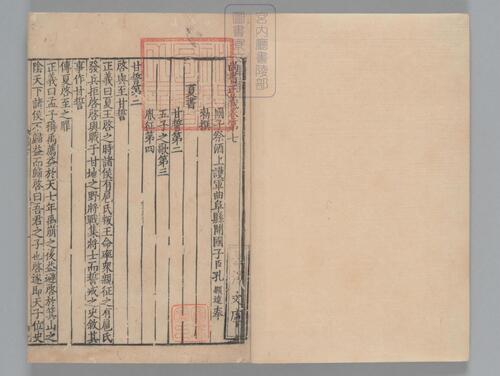 尚書正義卷第七
國子祭酒上護軍曲阜縣開國子臣孔穎達奉
勑撰
夏書
甘誓第二
五子之歌第三
胤征第四
甘誓第二
啓與至甘誓
正義曰夏王啓之時諸侯有扈氏叛王命率衆親征之有扈氏
發兵拒啓啓與戰于甘地之野將戰集將士而誓戒之史敘其
事作甘誓
傳夏啓至之罪
正義曰孟子稱禹薦益於天七年禹崩之後益避啓於箕山之
陰天下諸侯不歸益而歸啓曰吾君之子也啓遂即天子位史
宮内廳書陵部
圖書寮文庫
文庫